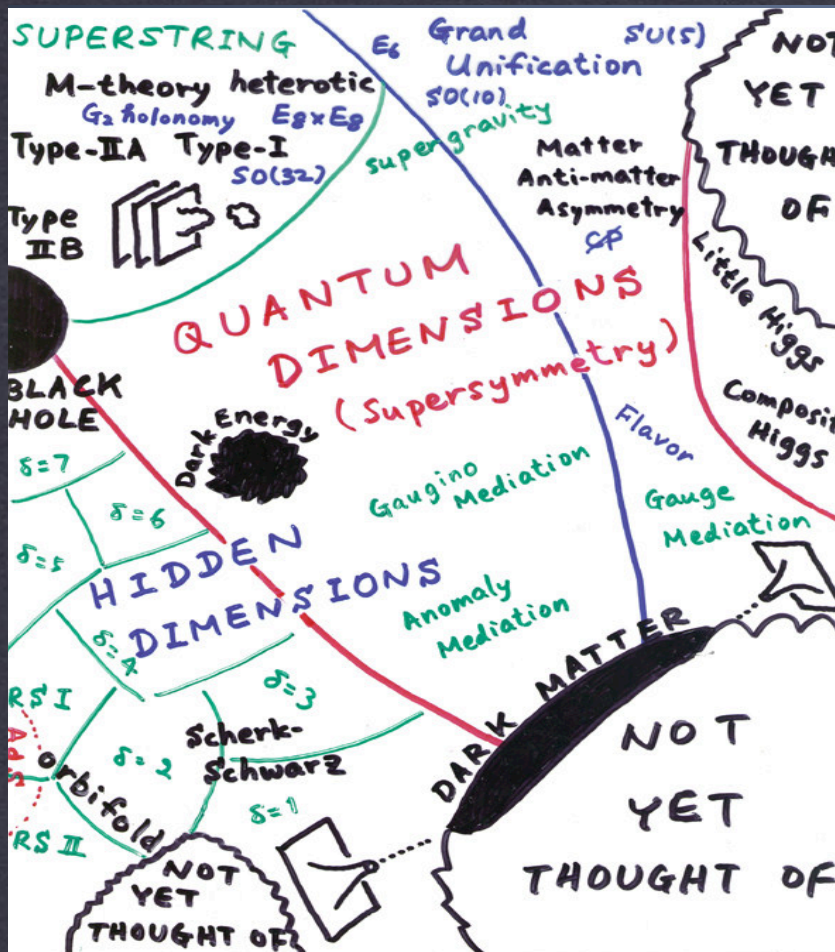 SUPERSTRING
M-theory heterotic
G₂ holonomy E₈×E₈
Type-IIA Type-I
SO(32)
Type
IIB
E₆ Grand
Unification
SU(5)
SO(10)
supergravity
Matter
Anti-matter
Asymmetry
CP
NOT
YET
THOUGHT
OF
Little Higgs
Composit
Higgs
QUANTUM
DIMENSIONS
(Supersymmetry)
BLACK
HOLE
Dark Energy
Flavor
Gaugino
Mediation
Gauge
Mediation
Anomaly
Mediation
δ=7
δ=6
δ=5
HIDDEN
DIMENSIONS
δ=4
δ=3
RS I
AdS
orbifold
δ=2
Scherk-
Schwarz
δ=1
RS II
DARK MATTER
NOT
YET
THOUGHT OF
NOT
YET
THOUGHT OF